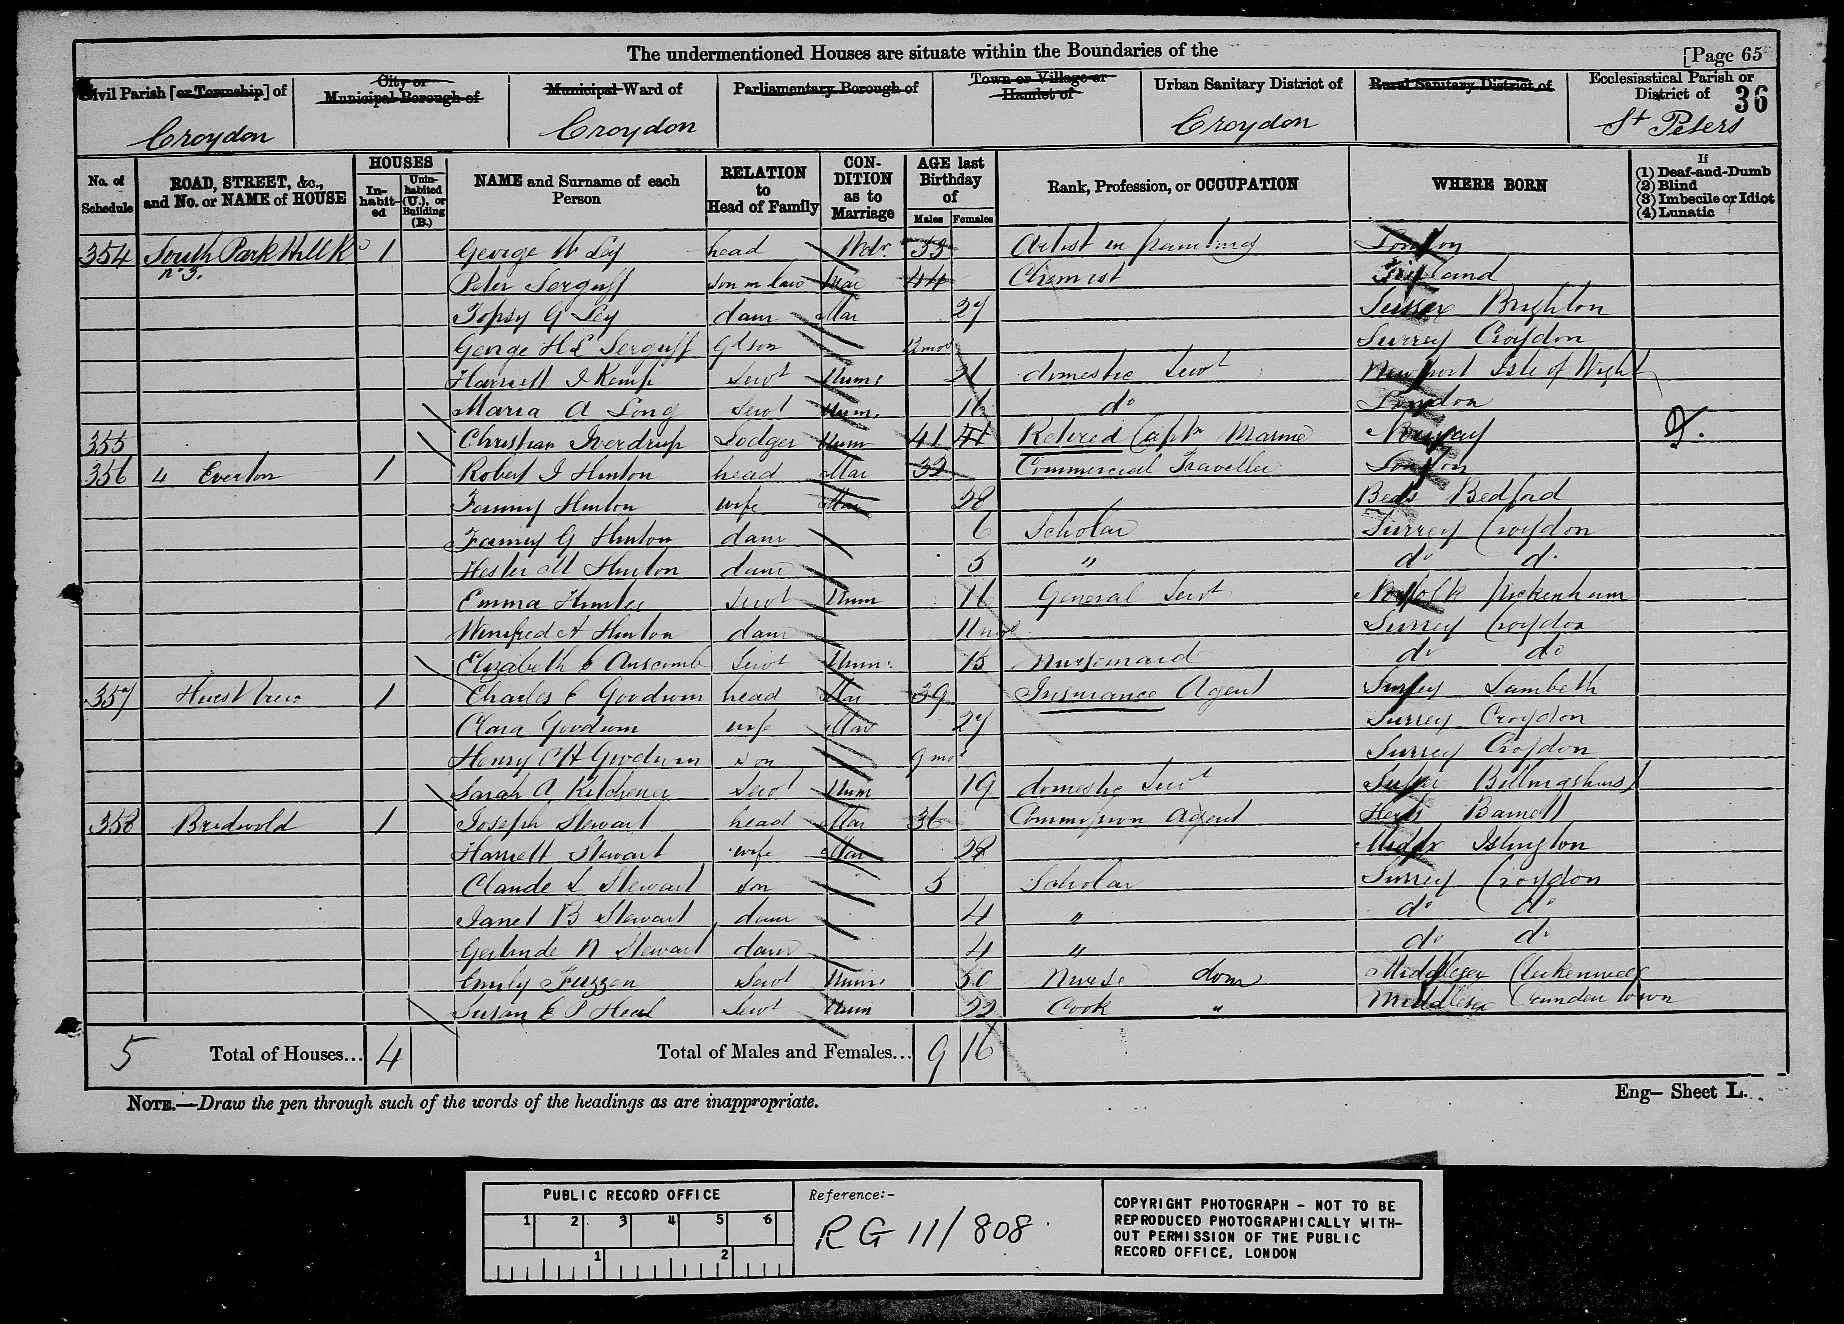 The undermentioned Houses are situate within the Boundaries of the
[Page 65
Civil Parish [or Township] of
City or Municipal Borough of
Municipal Ward of
Parliamentary Borough of
Town or Village or Hamlet of
Urban Sanitary District of
Rural Sanitary District of
Ecclesiastical Parish or District of
36
Croydon
Croydon
Croydon
St Peters
No. of Schedule
ROAD, STREET, &c., and No. or NAME of HOUSE
HOUSES
In-habit-ed
Unin-habited (U.), or Building (B.)
NAME and Surname of each Person
RELATION to Head of Family
CON-DITION as to Marriage
AGE last Birthday of
Males
Females
Rank, Profession, or OCCUPATION
WHERE BORN
If
(1) Deaf-and-Dumb
(2) Blind
(3) Imbecile or Idiot
(4) Lunatic
354 South Park Hill Rd 1 George W Ley head Widr. 53 Artist in painting London
no 3. Peter son in law Mar 44 Chemist
Topsy G Ley daur Mar 27 Sussex Brighton
George H L Gdson 12 mos Surrey Croydon
Harriett J Kemp Servt Unm. 21 domestic Servt Newport Isle of Wight
Maria A Long Servt Unm. 16 do London
355 Christian Sverdrup Lodger Unm 41 41 Retired Captn Marine Norway
356 4 Everton 1 Robert J Hinton head Mar 32 Commercial Traveller London
Fanny Hinton wife Mar 28 Beds Bedford
Fanny G Hinton daur 6 Scholar Surrey Croydon
Hester M Hinton daur 5 " do do
Emma Hunter Servt Unm 16 General Servt Norfolk Pickenham
Winifred A Hinton daur 11 mos Surrey Croydon
Elizabeth E Anscomb Servt Unm. 15 nursemaid do do
357 Hurst View 1 Charles E Goodwin head Mar 39 Insurance Agent Surrey Lambeth
Clara Goodwin wife Mar 27 Surrey Croydon
Henry C H Goodwin son 9 mos Surrey Croydon
Sarah A Kitchener Servt Unm 19 domestic Servt Sussex Billingshurst
358 1 Joseph Stewart head Mar 36 Commission Agent Herts Barnett
Harriett Stewart wife Mar 28 Middx Islington
Claude L Stewart son 5 Scholar Surrey Croydon
Janet B Stewart daur 4 " do do
Gertrude N Stewart daur 4 " do do
Emily Servt Unm. 50 Nurse dom Middlesex Clerkenwell
Susan E P Servt Unm 22 Cook " Middlesex Camden Town
5 Total of Houses... 4 Total of Males and Females... 9 16
NOTE.—Draw the pen through such of the words of the headings as are inappropriate.
Eng— Sheet L.
PUBLIC RECORD OFFICE
1 2 3 4 5 6
1 2
Reference:-
RG 11/808
COPYRIGHT PHOTOGRAPH - NOT TO BE
REPRODUCED PHOTOGRAPHICALLY WITH-
OUT PERMISSION OF THE PUBLIC
RECORD OFFICE, LONDON